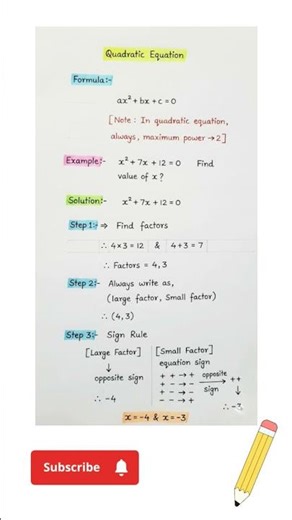 Quadratic Equation
Formula:-
ax² + bx + c = 0
[Note : In quadratic equation,
always, maximum power → 2]
Example:- x² + 7x + 12 = 0 Find
value of x ?
Solution:- x² + 7x + 12 = 0
Step 1:- ⇒ Find factors
∴ 4×3 = 12 & 4+3 = 7
∴ Factors = 4, 3
Step 2:- Always write as,
(large factor, Small factor)
∴ (4, 3)
Step 3:- Sign Rule
[Large Factor]
↓
opposite sign
∴ -4
[Small Factor]
equation sign
+ + → +
+ - → -
- + → -
- - → +
opposite
sign
→ ++
↓
∴ -3
x = -4 & x = -3
Subscribe